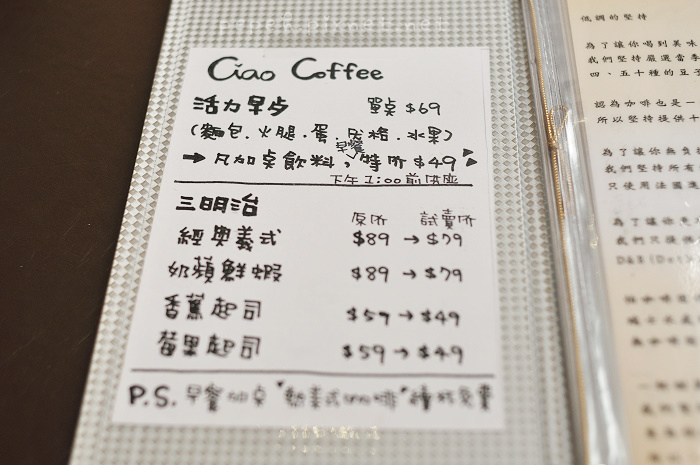 Ciao Coffee
活力早点 單点 $69
(麵包.火腿.蛋.优格.水果)
→ 凡加点飲料, 早餐特价 $49
下午 1:00前供应
三明治
原价 試賣价
經典義式 $89 → $79
奶蘋鮮蝦 $89 → $79
香蕉起司 $59 → $49
莓果起司 $59 → $49
P.S. 早餐加点"熱美式咖啡"續杯免費
低調的堅持
為了讓你喝到美味
我們堅持嚴選當季
四、五十種的豆子
認為咖啡也是一
所以堅持提供十
為了讓你無負擔
我們堅持所有
只使用法國
為了讓你
我們只提供